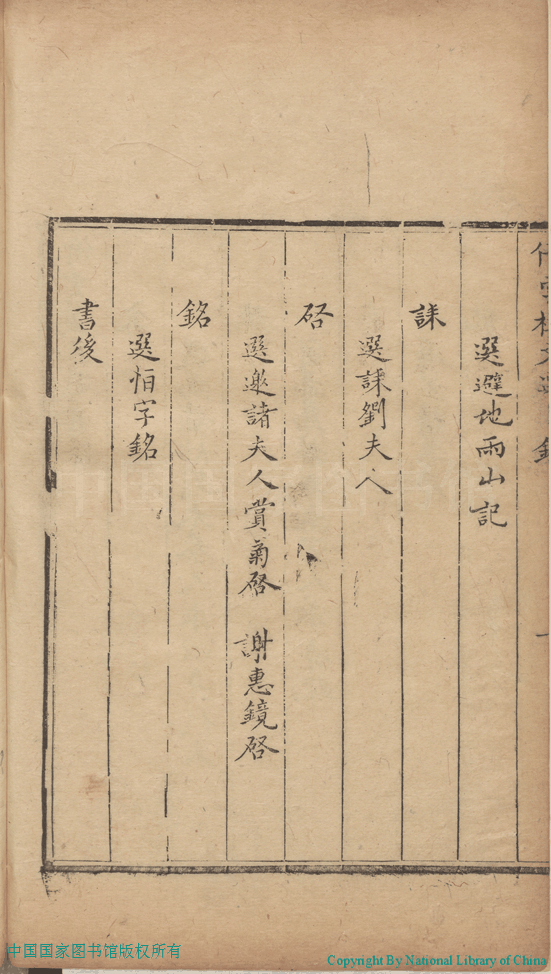 選避地雨山記
誄
選誄劉夫人
啓
選邀諸夫人賞菊啓　謝惠鏡啓
銘
選怕字銘
書後
中国国家图书馆版权所有
Copyright By National Library of China